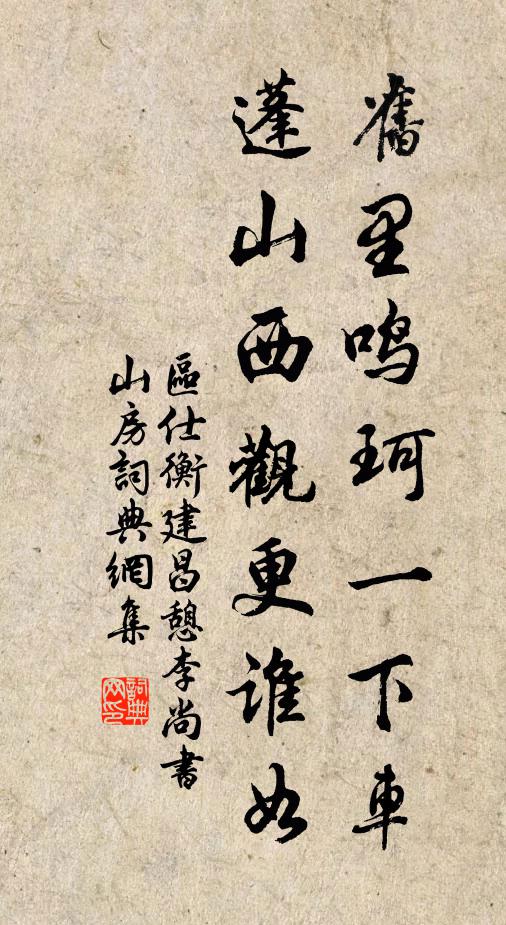 舊里鳴珂一下車
蓬山西觀更誰如
區仕衡建昌憩李尚書
山房詞典網集
詞典網印